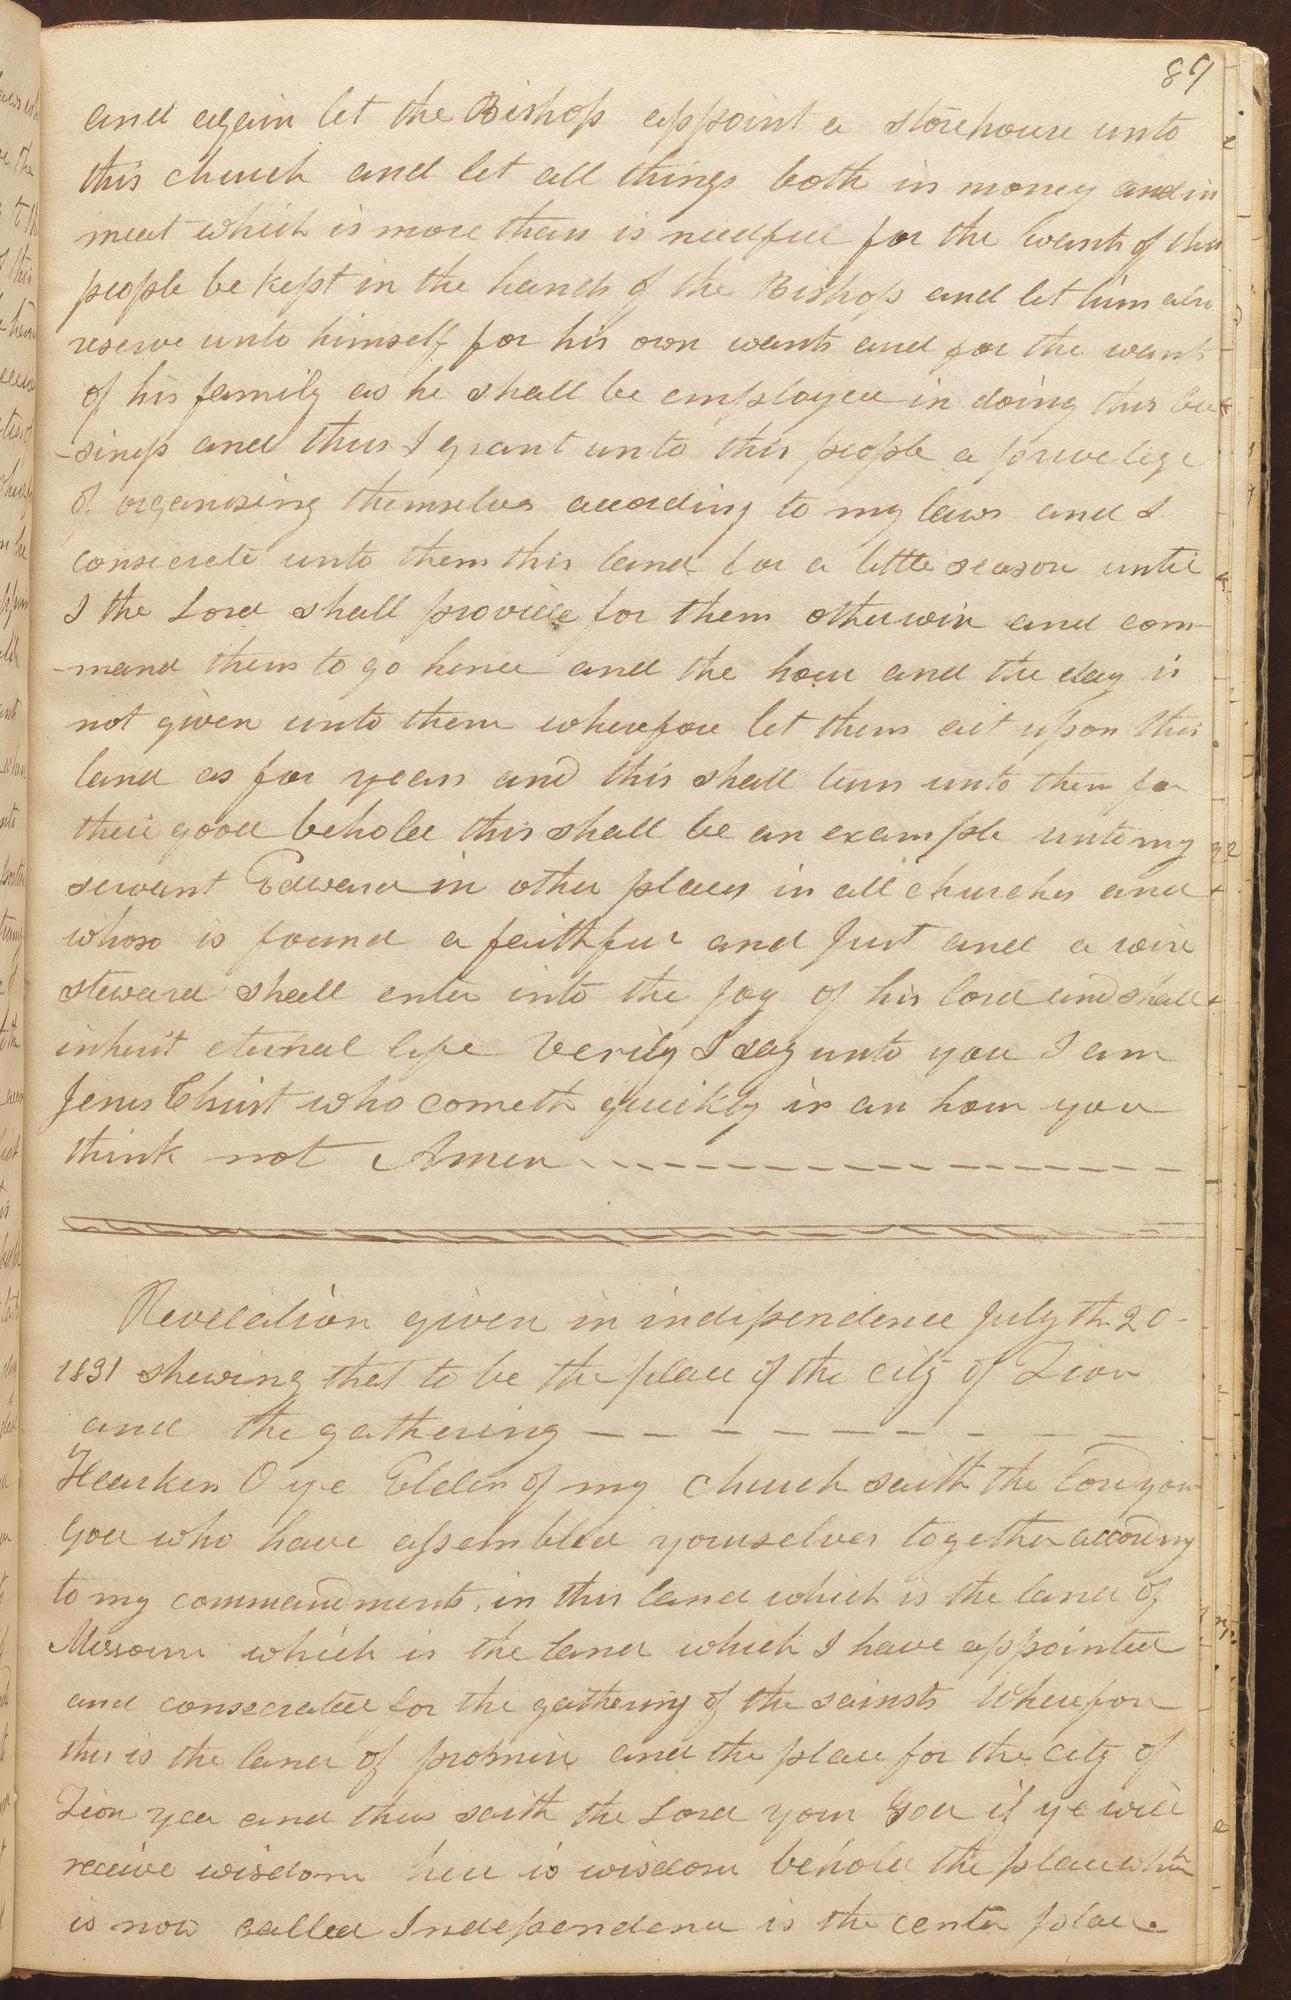 89
and again let the Bishop appoint a storehouse unto
this church and let all things both in money and in
meat which is more than is needful for the wants of this
people be kept in the hands of the Bishop and let him also
reserve unto himself for his own wants and for the wants
of his family as he shall be employed in doing this bu
-siness and thus I grant unto this people a privelege
of organising themselves according to my laws and I
consecrete unto them this land for a little season until
I the Lord shall provide for them otherwise and com-
-mand them to go hence and the hour and the day is
not given unto them wherefore let them act upon this
land as for years and this shall turn unto them for
their good behold this shall be an example unto my
servant Edward in other places in all churches and
whoso is found a faithful and Just and a wise
steward shall enter into the Joy of his lord and shall
inherit eternal life Verily I say unto you I am
Jesus Christ who cometh quickly in an hour you
think not Amen
Revelation given in independence July th 20
1831 shewing that to be the place of the city of Zion
and the gathering
Hearken O ye Elders of my church saith the Lord your
God who have assembled yourselves together according
to my commandments, in this land which is the land of
Missouri which is the land which I have appointed
and consecrated for the gathering of the saints Wherefore
this is the land of promise and the place for the city of
Zion yea and thus saith the Lord your God if ye will
receive wisdom here is wisdom behold the place which
is now called Independence is the center place